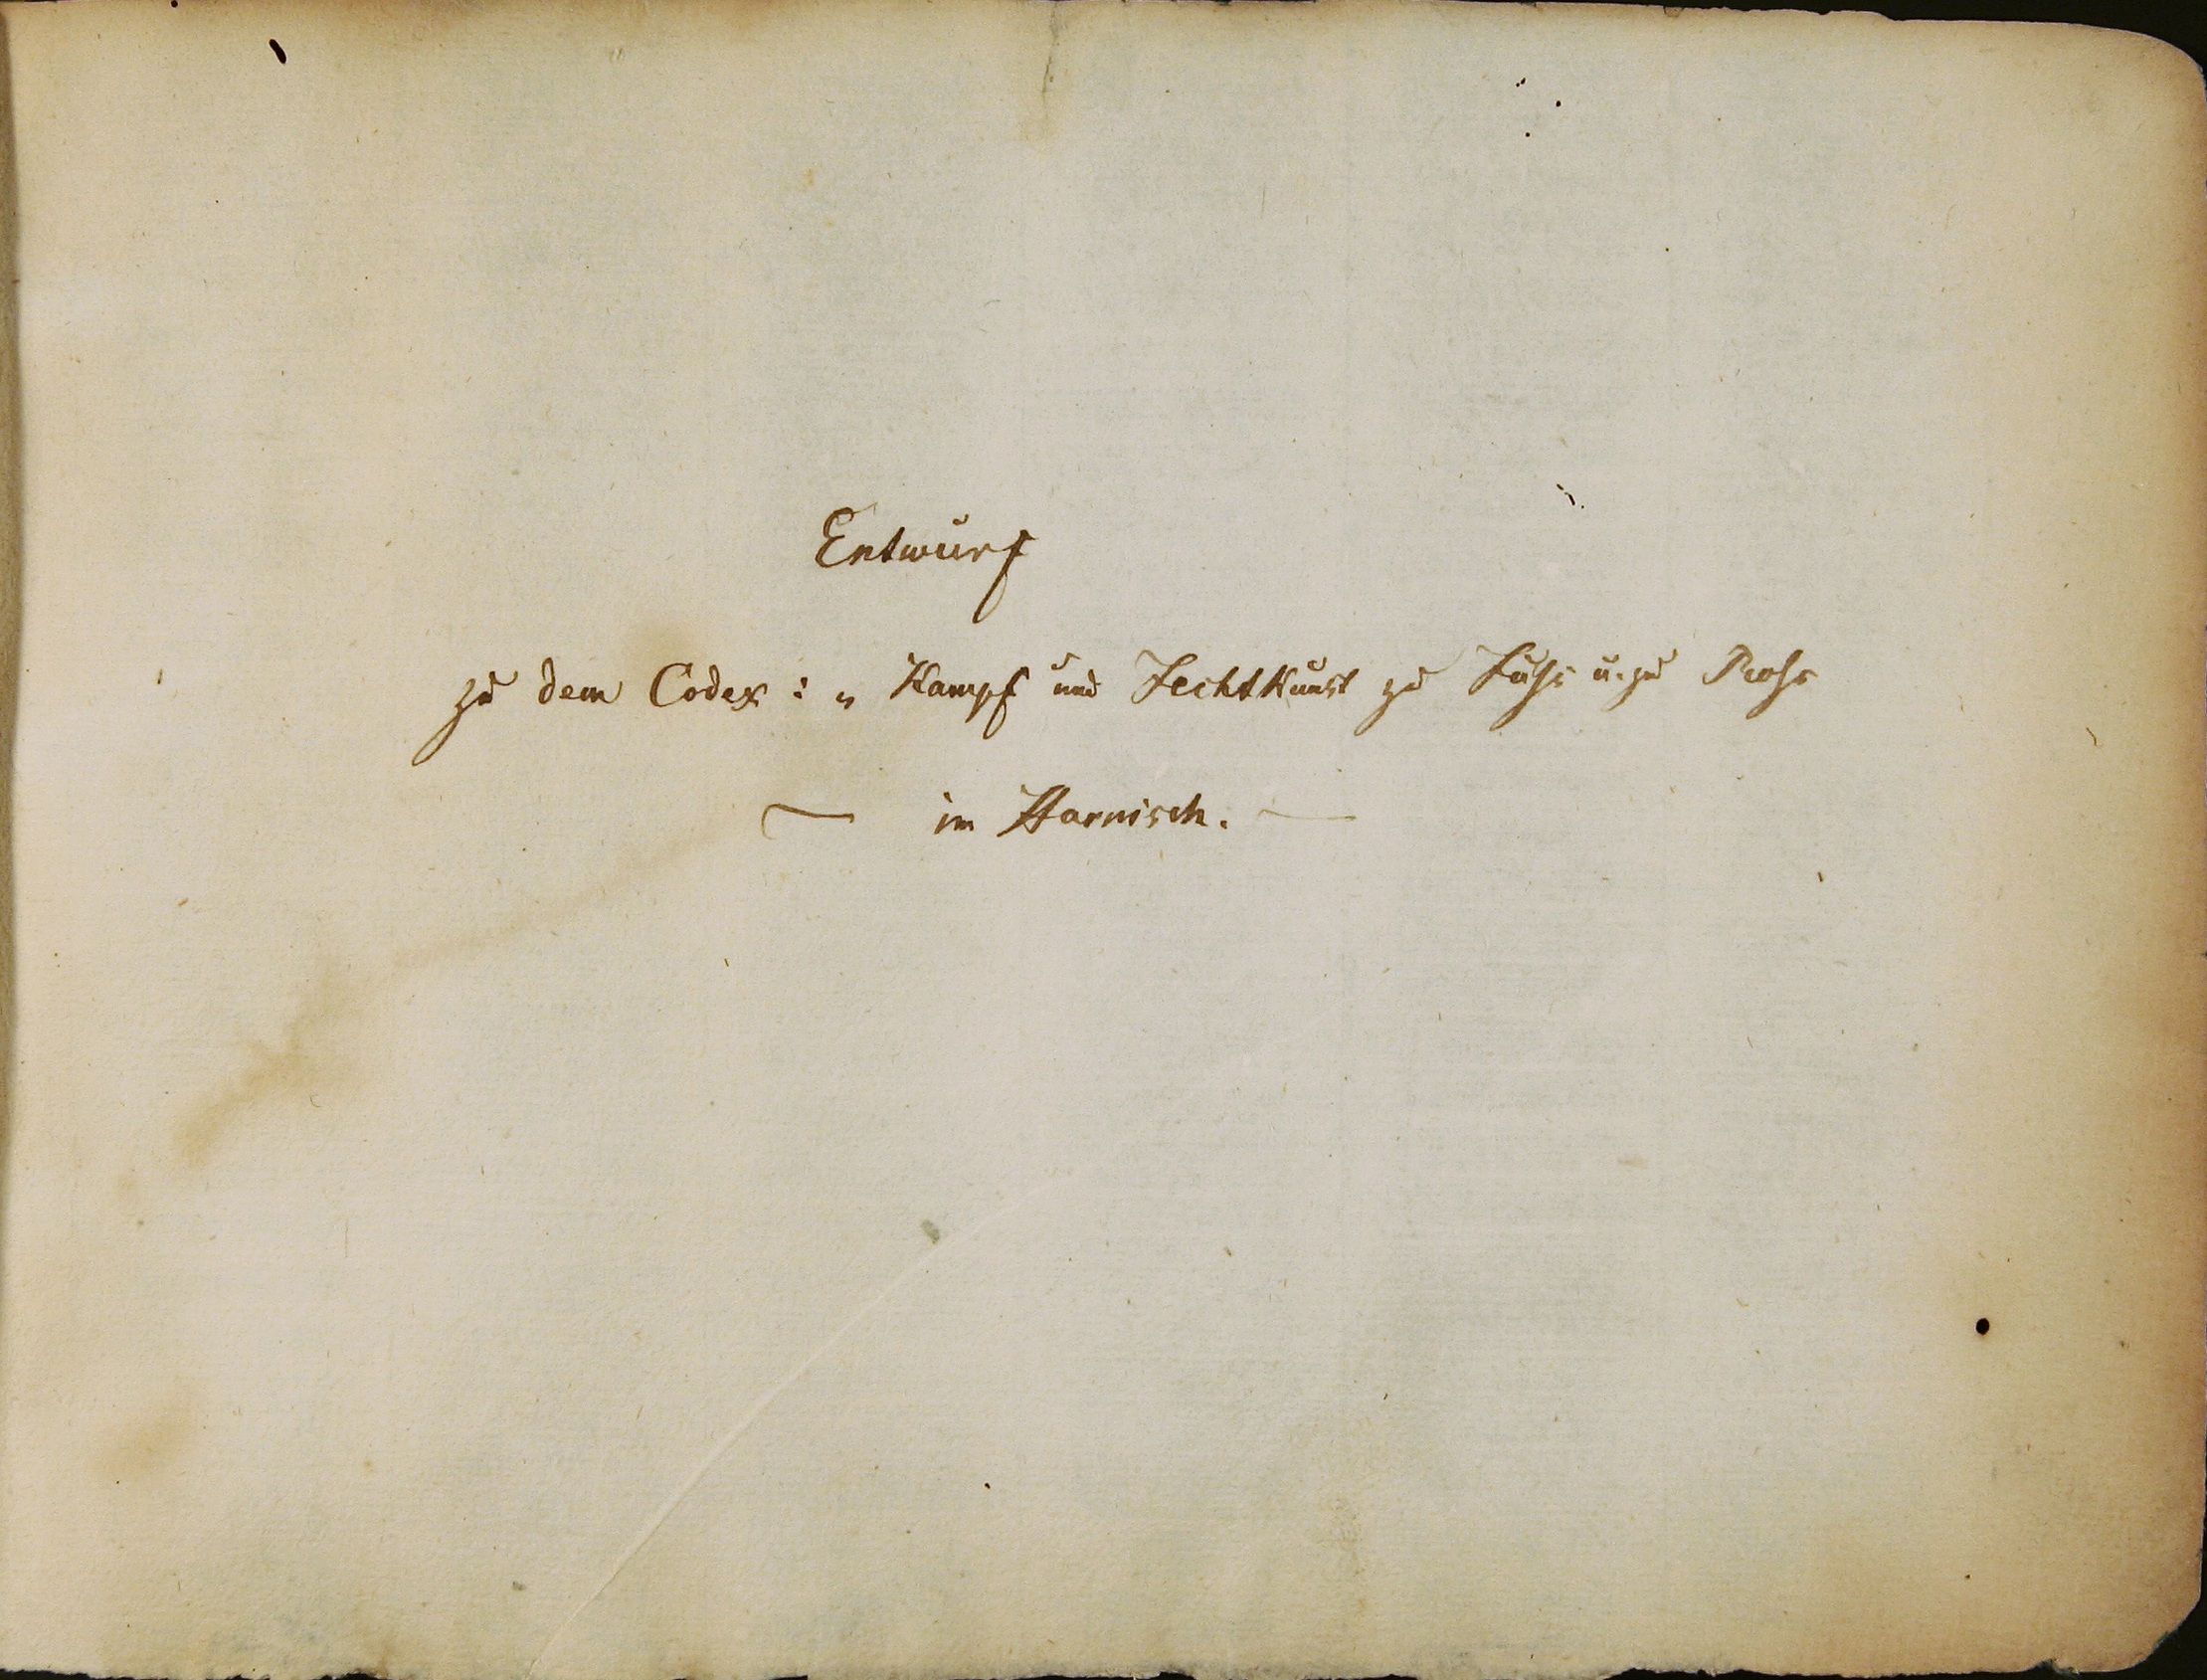 Entwurf
zu dem Codex: „Kampf und Fechtkunst zu Fuß u. zu Roß
— im Harnisch. —